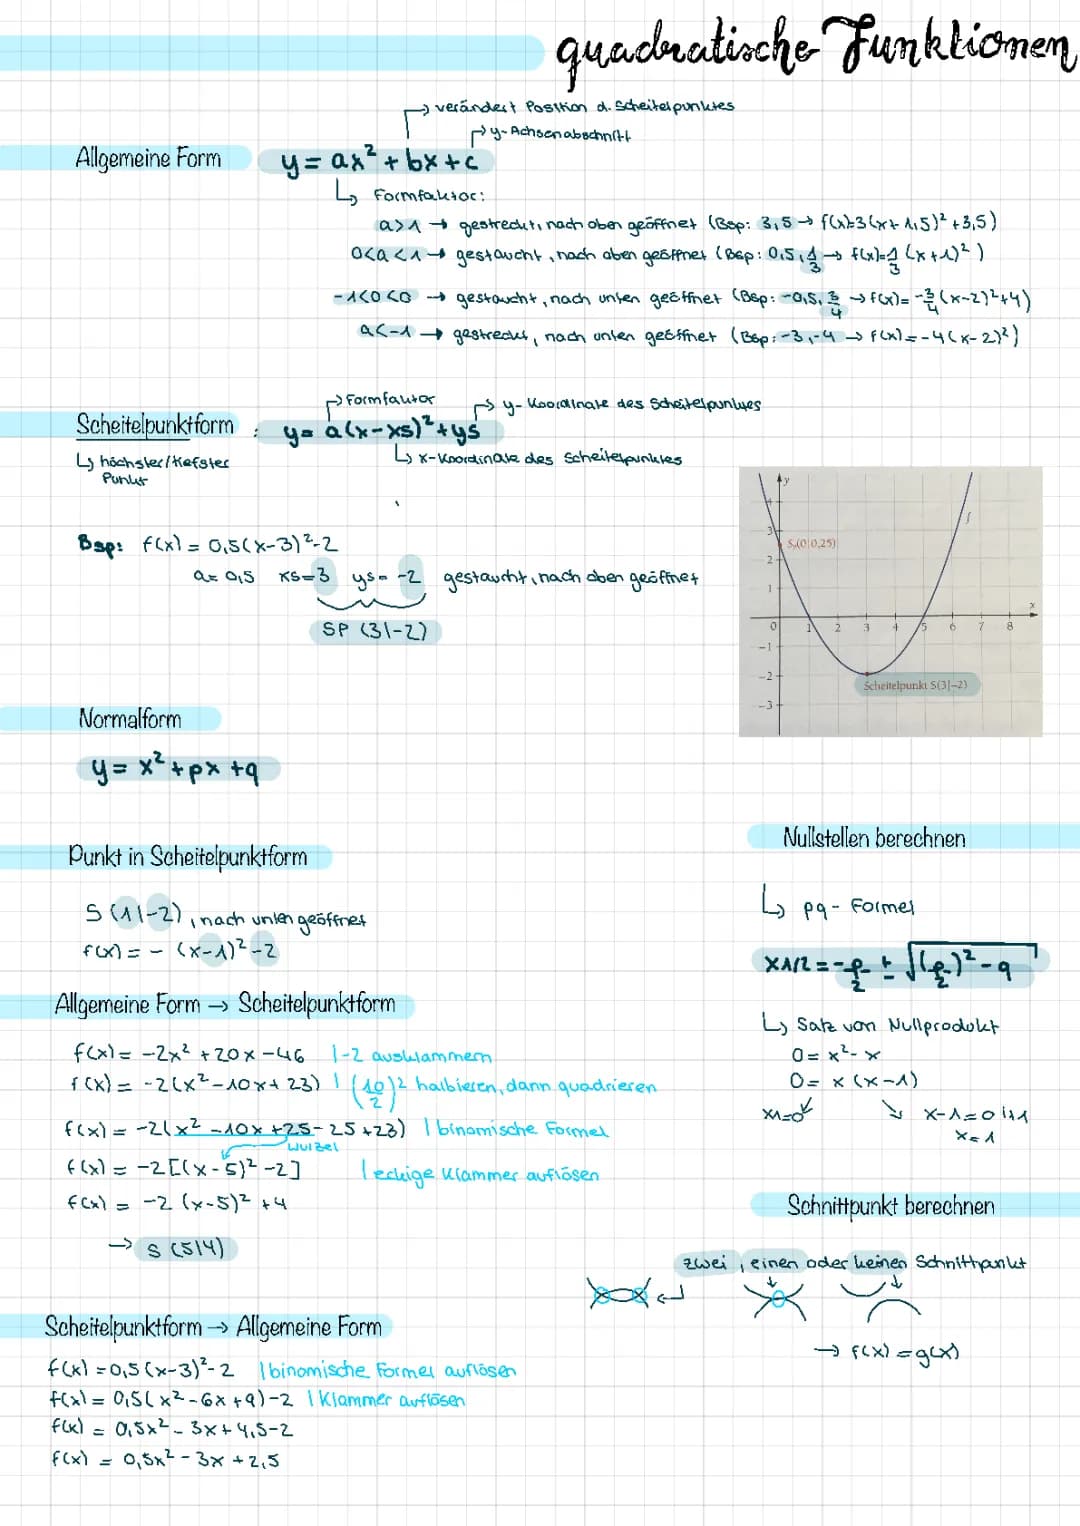 quadratische Funktionen
→ verändert Position d. Scheitelpunktes
→ y-Achsenabschnitt
Allgemeine Form
y = ax² + bx + c
↳ Formfaktor:
a>1 → gestreckt, nach oben geöffnet (Bsp: 3,5 → f(x)=3(x+1,5)²+3,5)
0<a<1 → gestaucht, nach oben geöffnet (Bsp: 0,5, 1/3 → f(x)=1/3(x+1)²)
-1<0<0 → gestaucht, nach unten geöffnet (Bsp: -0,5, 3/4 → f(x)= -3/4(x-2)²+4)
a<-1 → gestreckt, nach unten geöffnet (Bsp: -3,-4 → f(x)=-4(x-2)²)
→ Formfaktor
→ y-Koordinate des Scheitelpunktes
Scheitelpunktform : y= a(x-xs)²+ys
↳ höchster/tiefster Punkt
↳ x-Koordinate des Scheitelpunktes
Bsp: f(x) = 0,5(x-3)²-2
a= 0,5 xs=3 ys= -2 gestaucht, nach oben geöffnet
SP (3|-2)
y
f
4
3
Sy(0|0,25)
2
1
x
0 1 2 3 4 5 6 7 8
-1
-2
Scheitelpunkt S(3|-2)
-3
Normalform
y = x² + px + q
Punkt in Scheitelpunktform
S (1|-2), nach unten geöffnet
f(x) = - (x-1)²-2
Allgemeine Form → Scheitelpunktform
f(x) = -2x² + 20x - 46 | -2 ausklammern
f(x) = -2(x²-10x+23) | (10/2)² halbieren, dann quadrieren
f(x) = -2(x²-10x+25-25+23) | binomische Formel
Wurzel
f(x) = -2[(x-5)²-2] | eckige Klammer auflösen
f(x) = -2 (x-5)² +4
→ S (5|4)
Scheitelpunktform → Allgemeine Form
f(x) = 0,5(x-3)²-2 | binomische Formel auflösen
f(x) = 0,5(x²-6x+9)-2 | Klammer auflösen
f(x) = 0,5x² - 3x + 4,5-2
f(x) = 0,5x² - 3x + 2,5
Nullstellen berechnen
↳ pq- Formel
x1/2 = -p/2 ± √((p/2)² - q)
↳ Satz von Nullprodukt
0= x²- x
0= x (x-1)
x1=0 x-1=0 |+1
x=1
Schnittpunkt berechnen
zwei, einen oder keinen Schnittpunkt
→ f(x) = g(x)